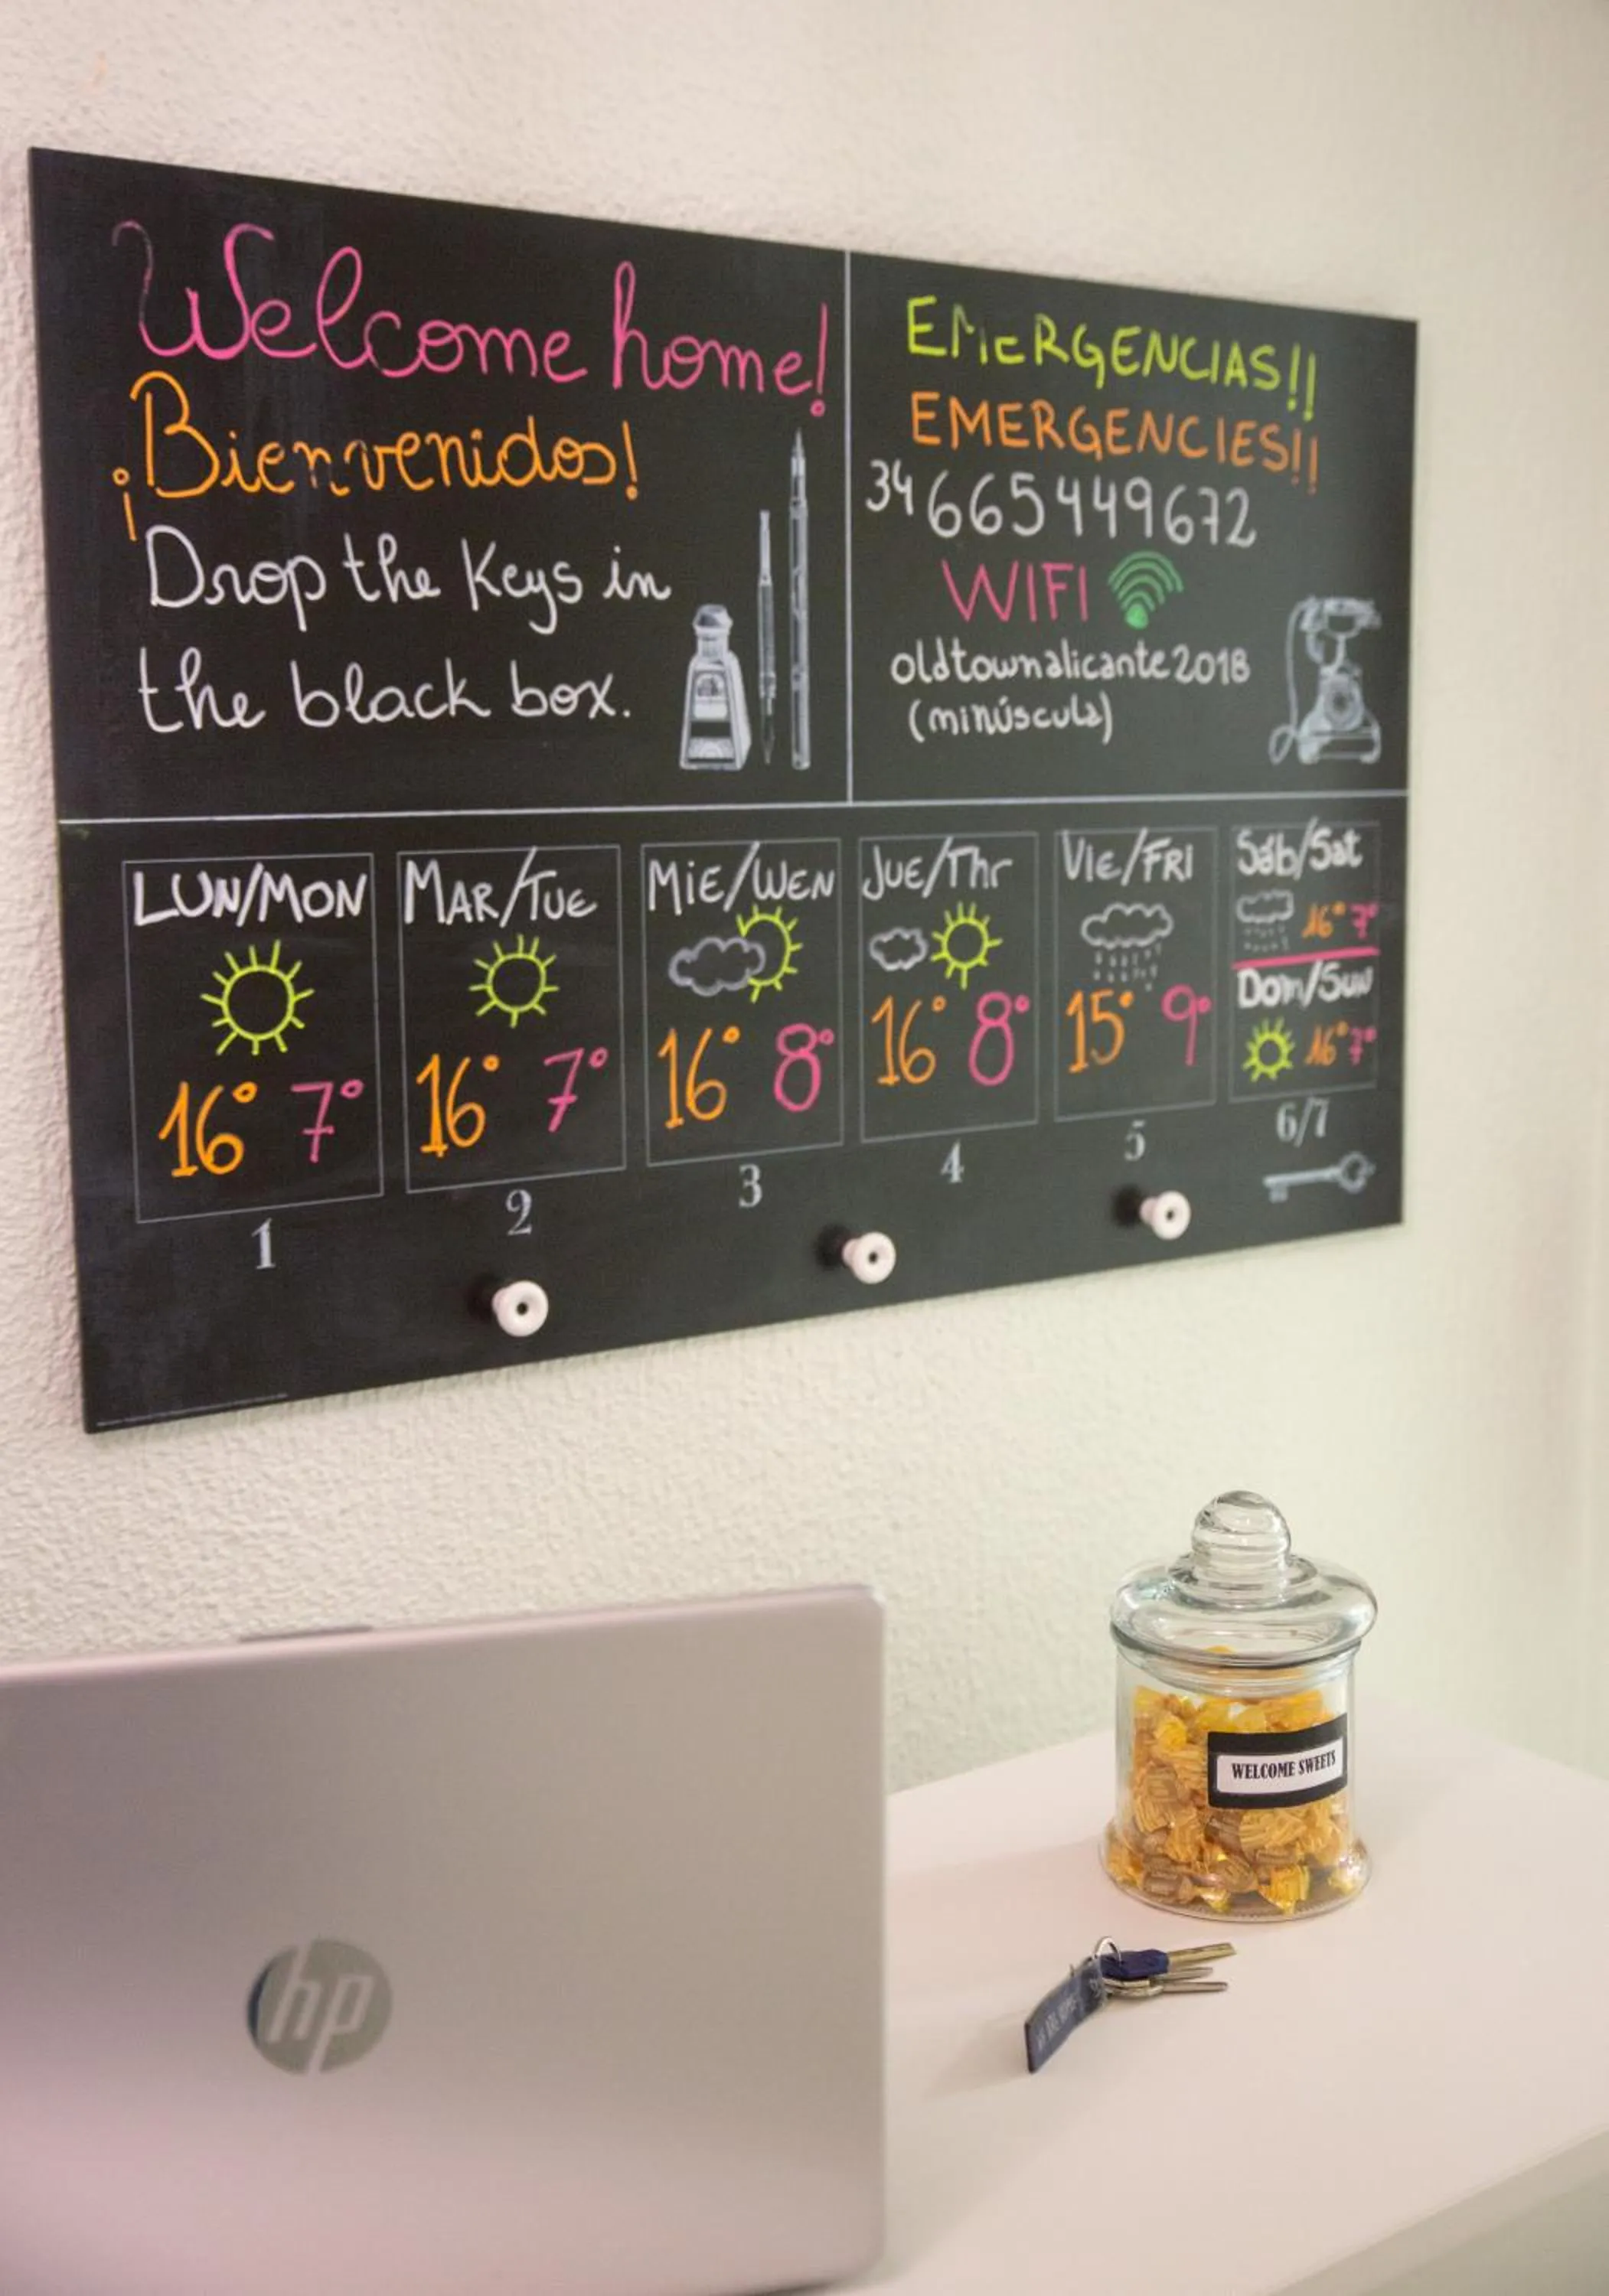 Welcome home!
¡Bienvenidos!
Drop the Keys in
the black box.
EMERGENCIAS!!
EMERGENCIES!!
34 665449672
WIFI
oldtownalicante2018
(minúscula)
LUN/MON
16° 7°
1
MAR/TUE
16° 7°
2
MIE/WEN
16° 8°
3
JUE/Thr
16° 8°
4
VIE/FRI
15° 9°
5
Sáb/Sat
16° 7°
Dom/Sun
16° 7°
6/7
WELCOME SWEETS
hp